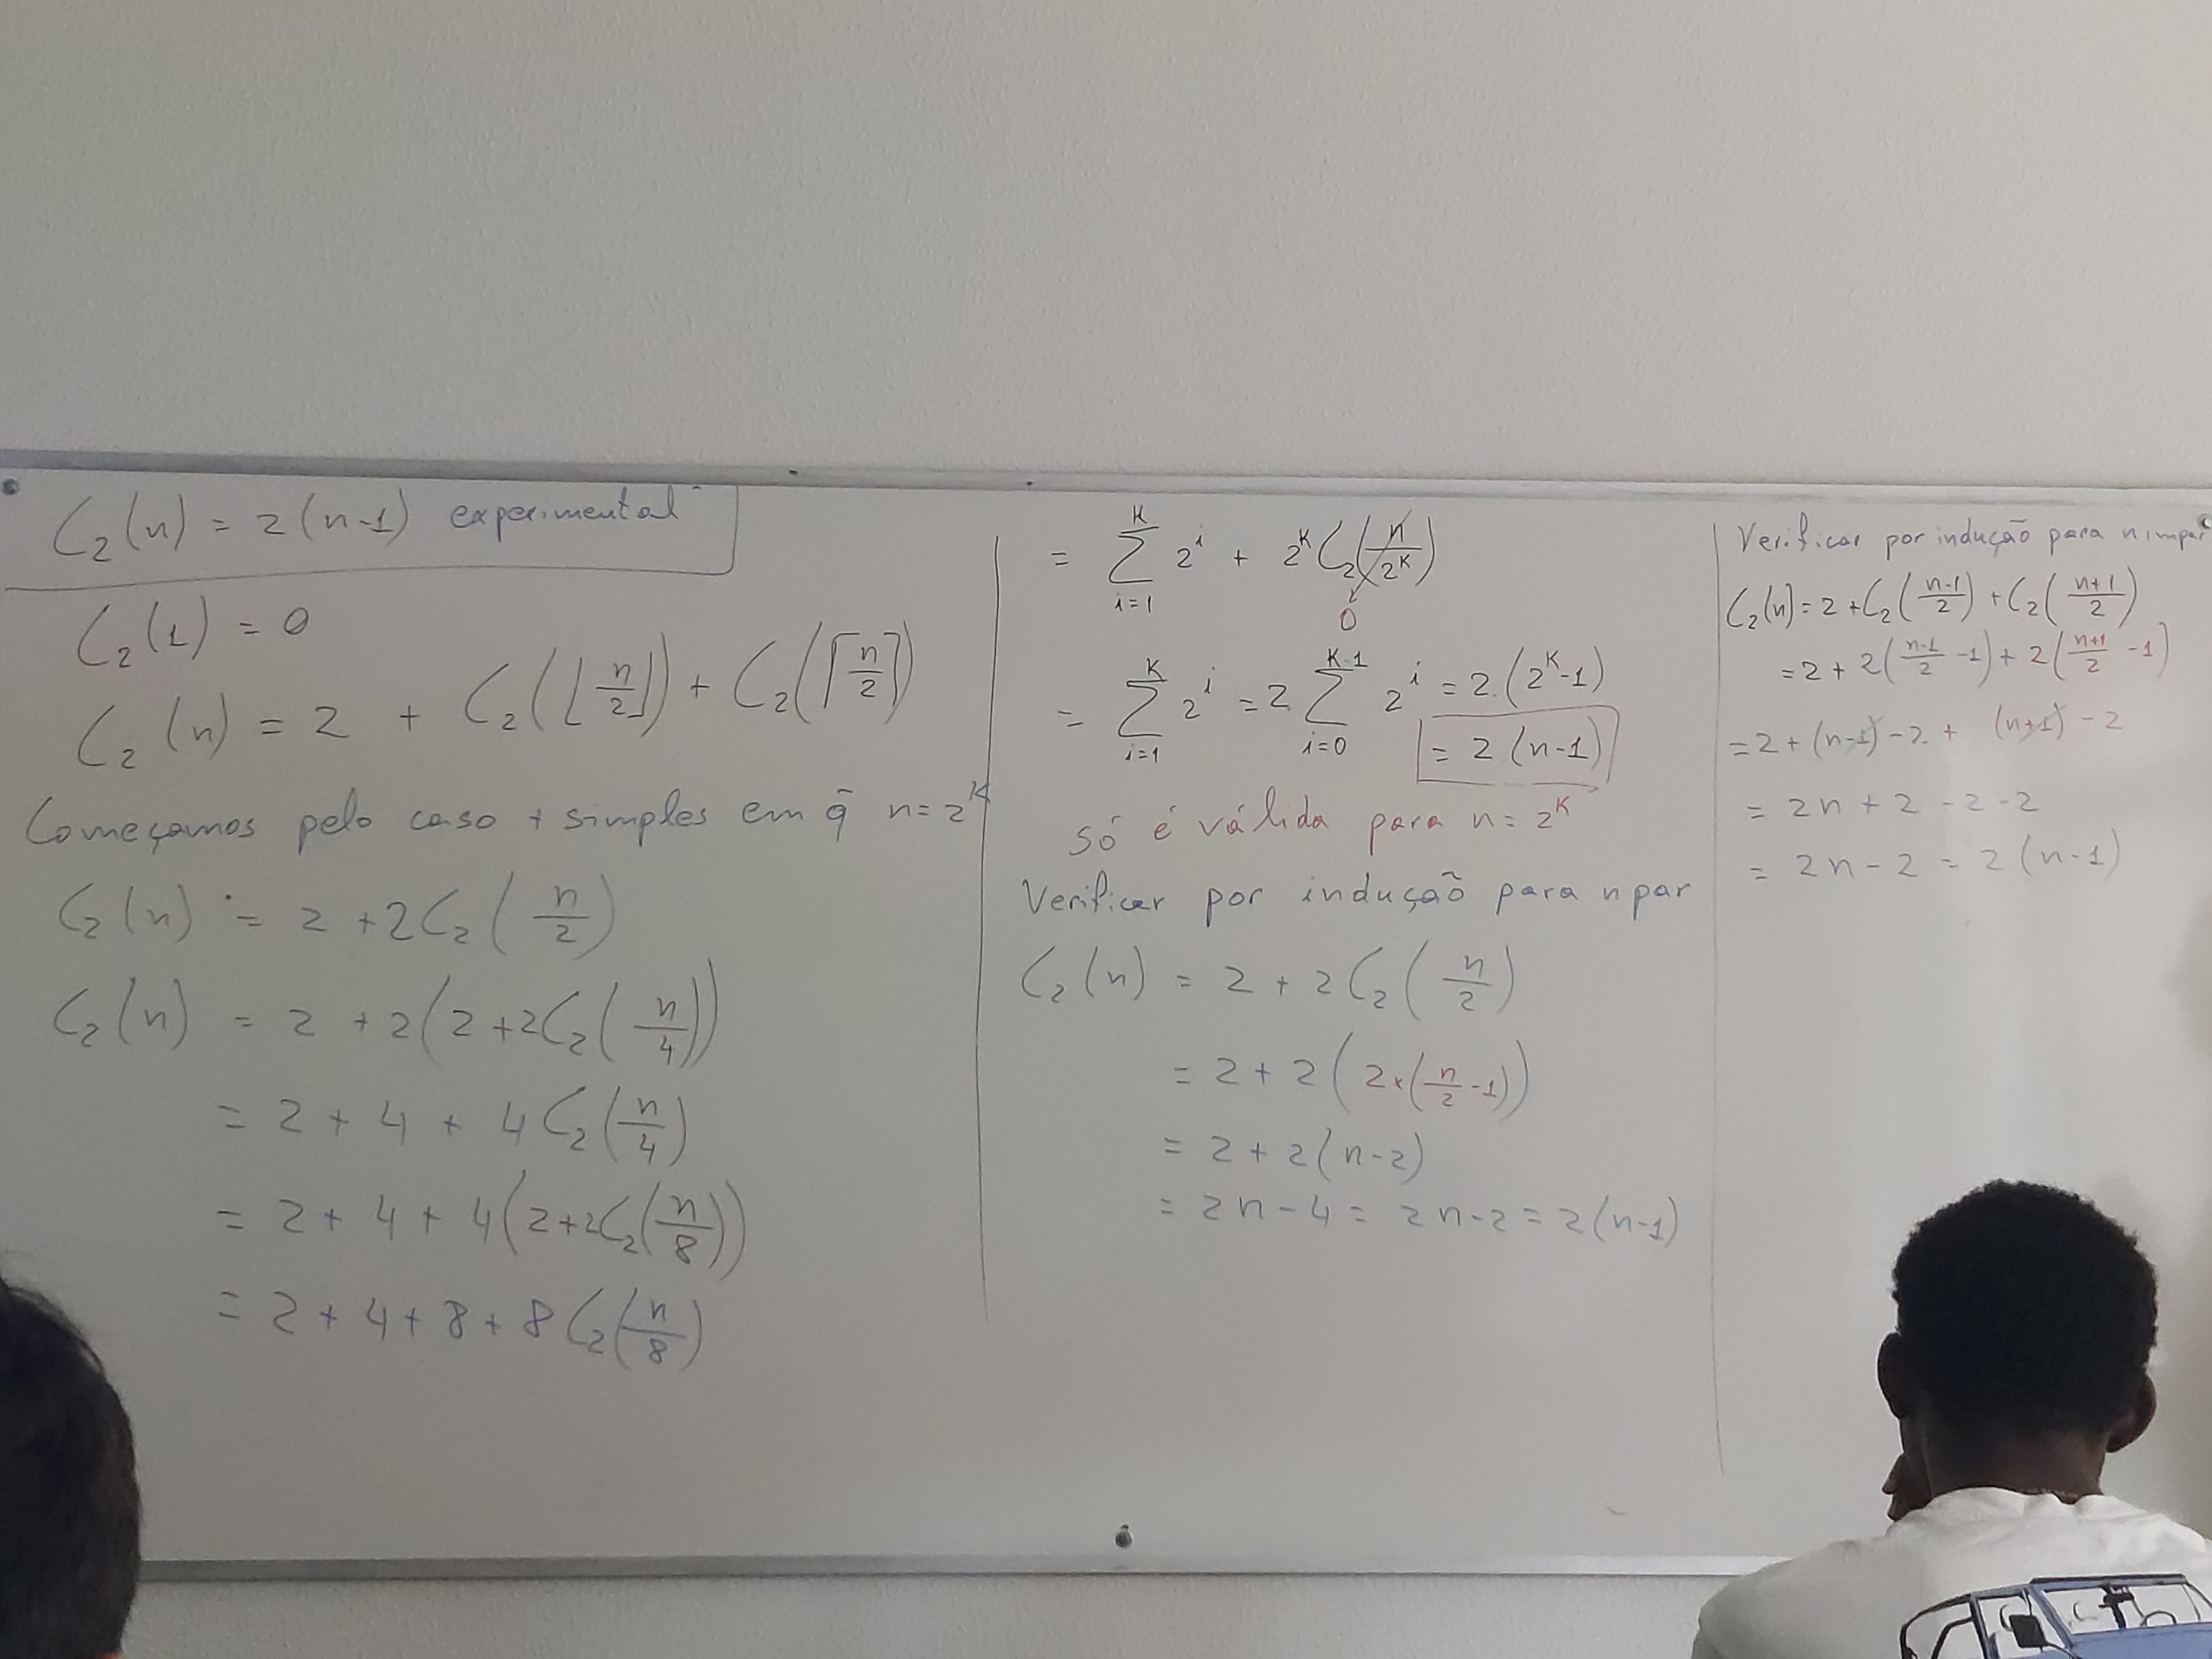 C₂(n) = 2(n-1) experimental
C₂(1) = 0
C₂(n) = 2 + C₂(⌊n/2⌋) + C₂(⌈n/2⌉)
Começamos pelo caso + simples em q̃ n = 2^K
C₂(n) = 2 + 2C₂(n/2)
C₂(n) = 2 + 2(2 + 2C₂(n/4))
= 2 + 4 + 4C₂(n/4)
= 2 + 4 + 4(2 + 2C₂(n/8))
= 2 + 4 + 8 + 8C₂(n/8)
= ∑_{i=1}^{K} 2^i + 2^K C₂(n/2^K)
0
= ∑_{i=1}^{K} 2^i = 2.∑_{i=0}^{K-1} 2^i = 2.(2^K-1)
= 2(n-1)
só é válida para n = 2^K
Verificar por indução para n par
C₂(n) = 2 + 2C₂(n/2)
= 2 + 2(2×(n/2 - 1))
= 2 + 2(n-2)
= 2n - 4 = 2n - 2 = 2(n-1)
Verificar por indução para n impar
C₂(n) = 2 + C₂((n-1)/2) + C₂((n+1)/2)
= 2 + 2((n-1)/2 - 1) + 2((n+1)/2 - 1)
= 2 + (n-1) - 2 + (n+1) - 2
= 2n + 2 - 2 - 2
= 2n - 2 = 2(n-1)